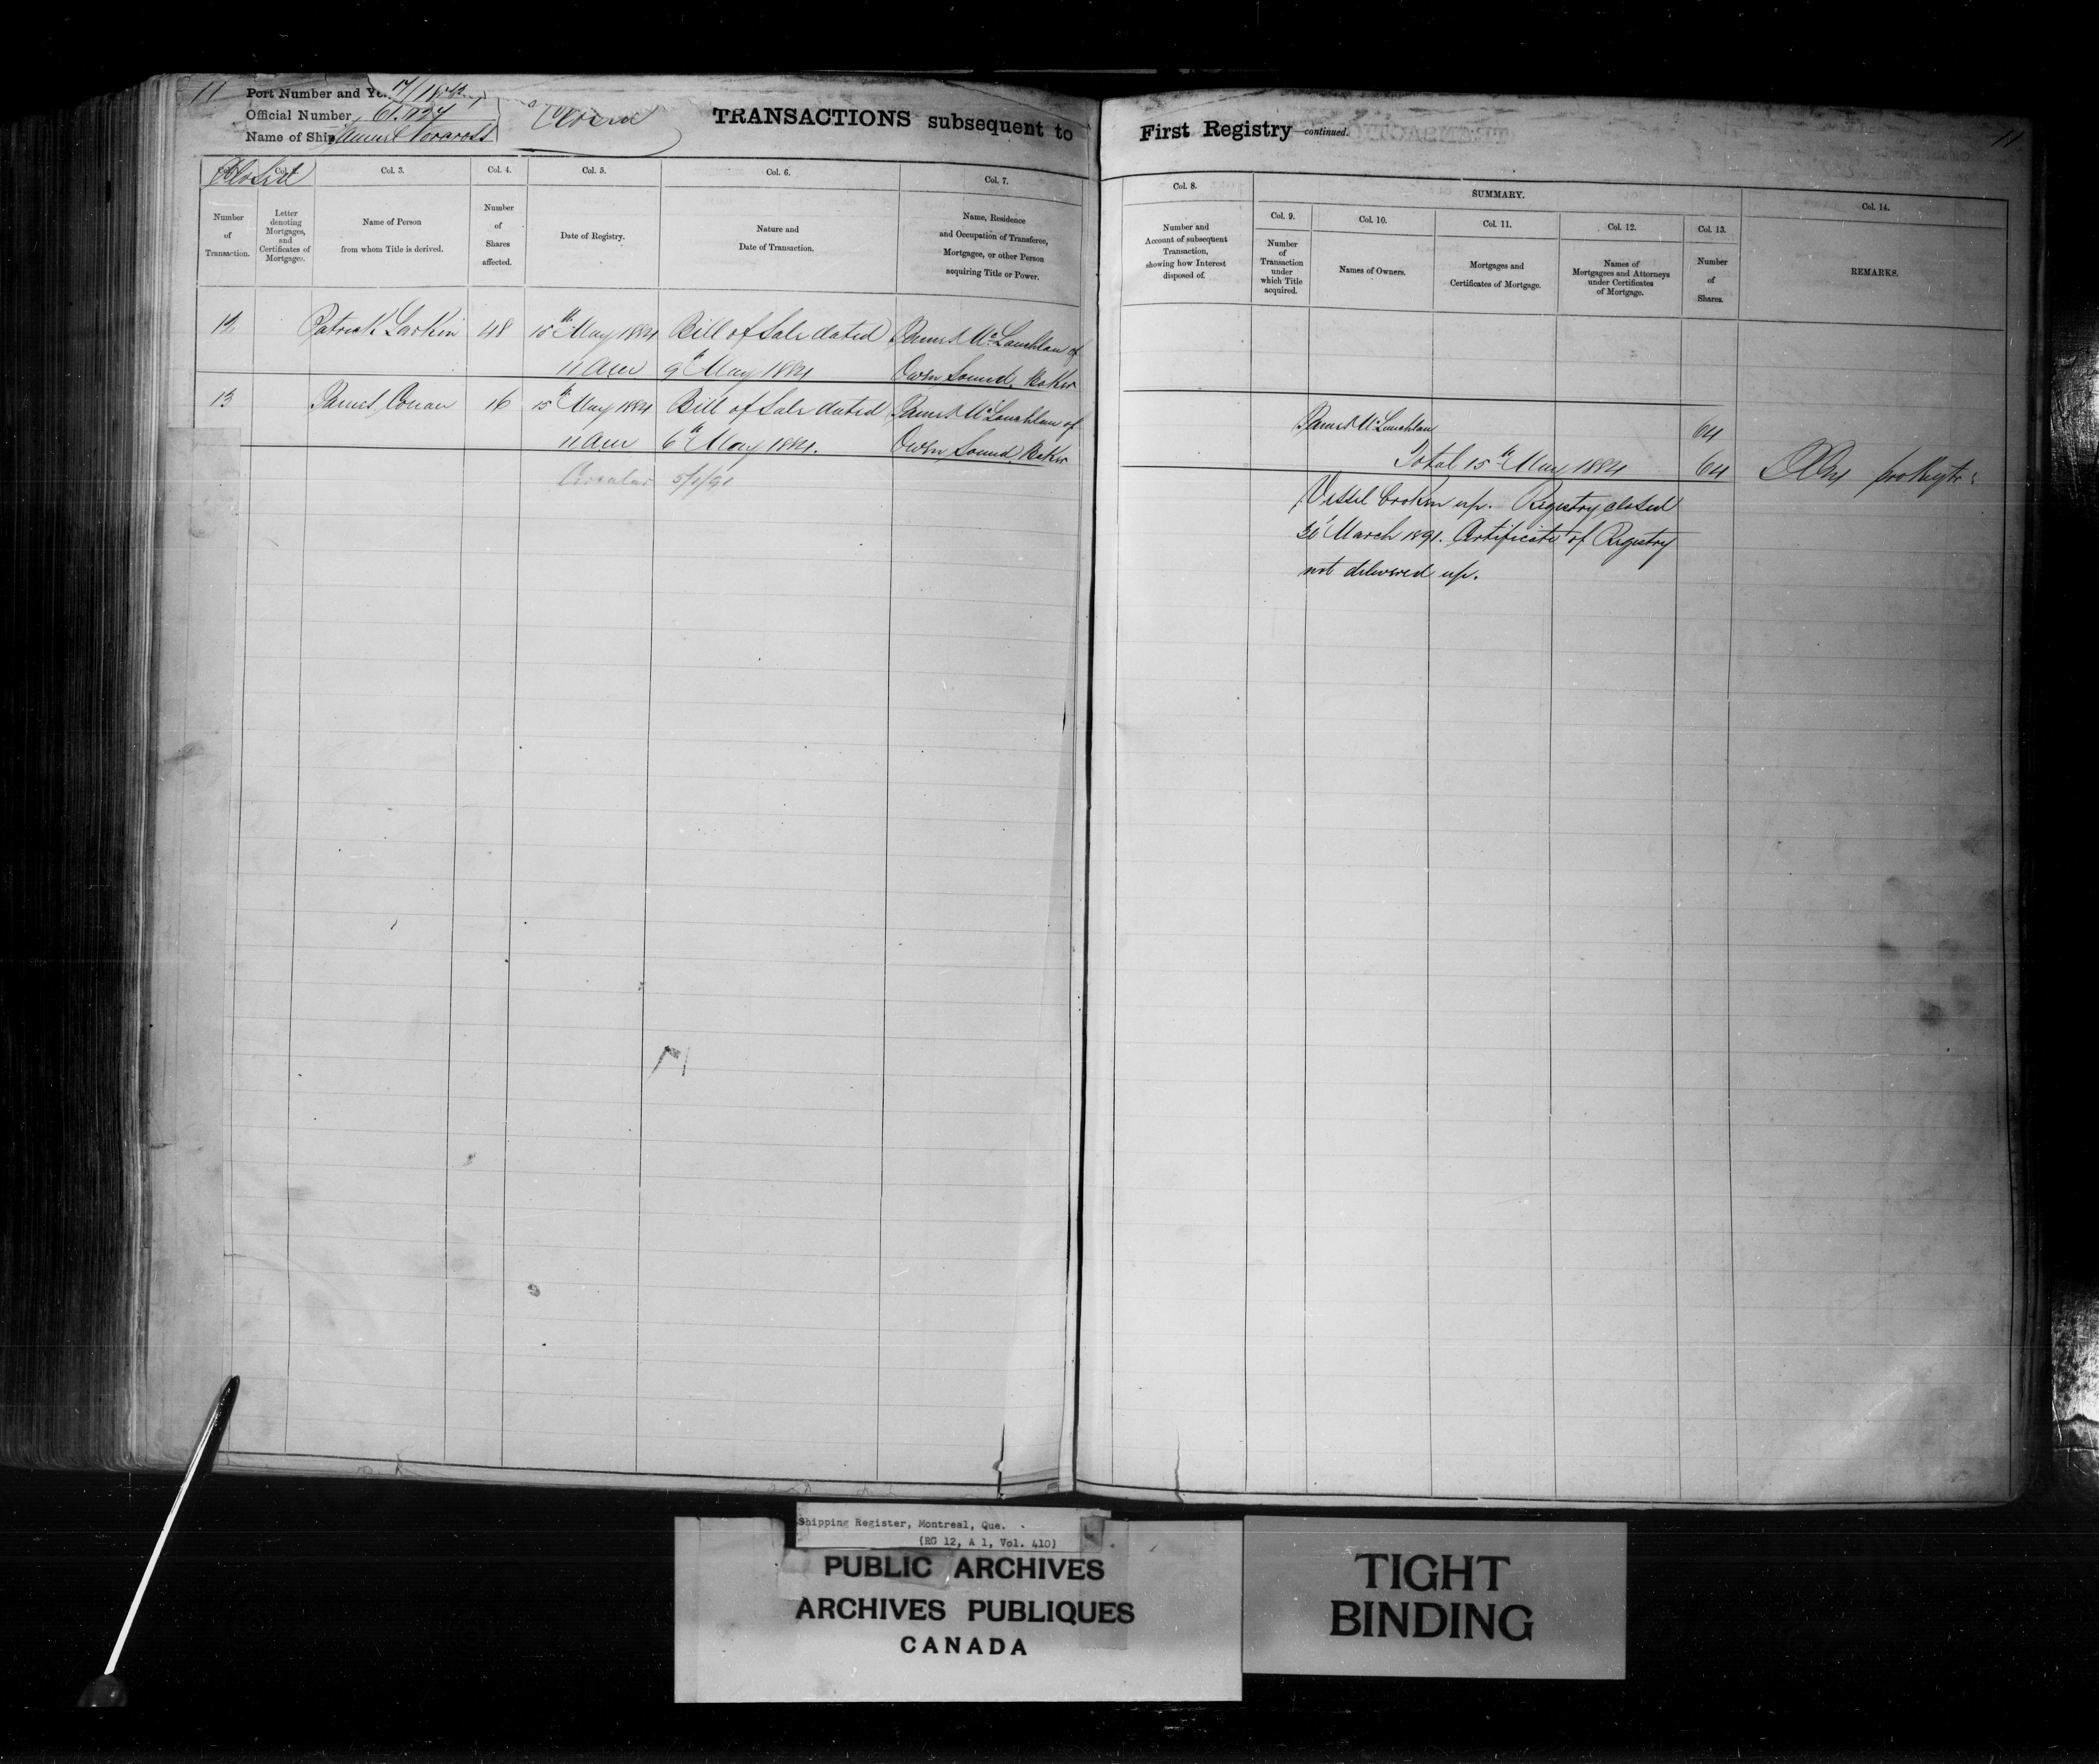 11
Port Number and Ye.
Official Number
Name of Ship
TRANSACTIONS subsequent to
First Registry—continued.
11
Closed
Col. 3.
Col. 4.
Col. 5.
Col. 6.
Col. 7.
Number
of
Transaction.
Letter
denoting
Mortgages,
and
Certificates of
Mortgages.
Name of Person
from whom Title is derived.
Number
of
Shares
affected.
Date of Registry.
Nature and
Date of Transaction.
Name, Residence
and Occupation of Transferee,
Mortgagee, or other Person
acquiring Title or Power.
12 Patrick Larkin 48 15th May 1884 Bill of Sale dated James McLauchlan of
11 am 9th May 1884 Owen Sound, Baker
13 James Conan 16 15th May 1884 Bill of Sale dated James McLauchlan of
11 am 6th May 1884. Owen Sound, Baker
Circular 5/1/91
Col. 8.
SUMMARY.
Col. 14.
Col. 9.
Col. 10.
Col. 11.
Col. 12.
Col. 13.
Number and
Account of subsequent
Transaction,
showing how Interest
disposed of.
Number
of
Transaction
under
which Title
acquired.
Names of Owners.
Mortgages and
Certificates of Mortgage.
Names of
Mortgagees and Attorneys
under Certificates
of Mortgage.
Number
of
Shares.
REMARKS.
James McLauchlan 64
Total 15th May 1884 64
Vessel broken up. Registry closed
March 1891. Certificate of Registry
not delivered up.
Shipping Register, Montreal, Que.
(RG 12, A 1, Vol. 410)
PUBLIC ARCHIVES
ARCHIVES PUBLIQUES
CANADA
TIGHT
BINDING